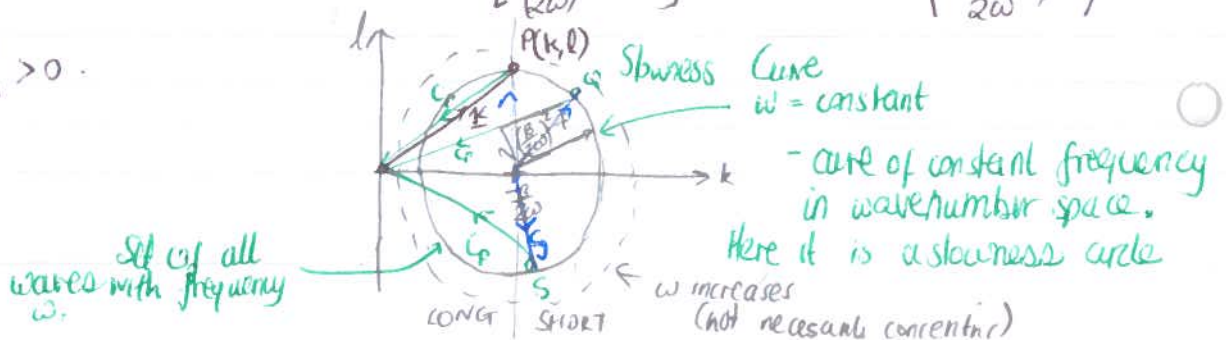 2ω
2ω
l
P(k, l)
> 0.
Slowness Curve
Q
ω = constant
c_p
K
c_p
k
- curve of constant frequency
in wavenumber space.
Here it is a slowness circle
c_p
Set of all
waves with frequency
ω.
S
ω increases
LONG SHORT
(not necessarily concentric)